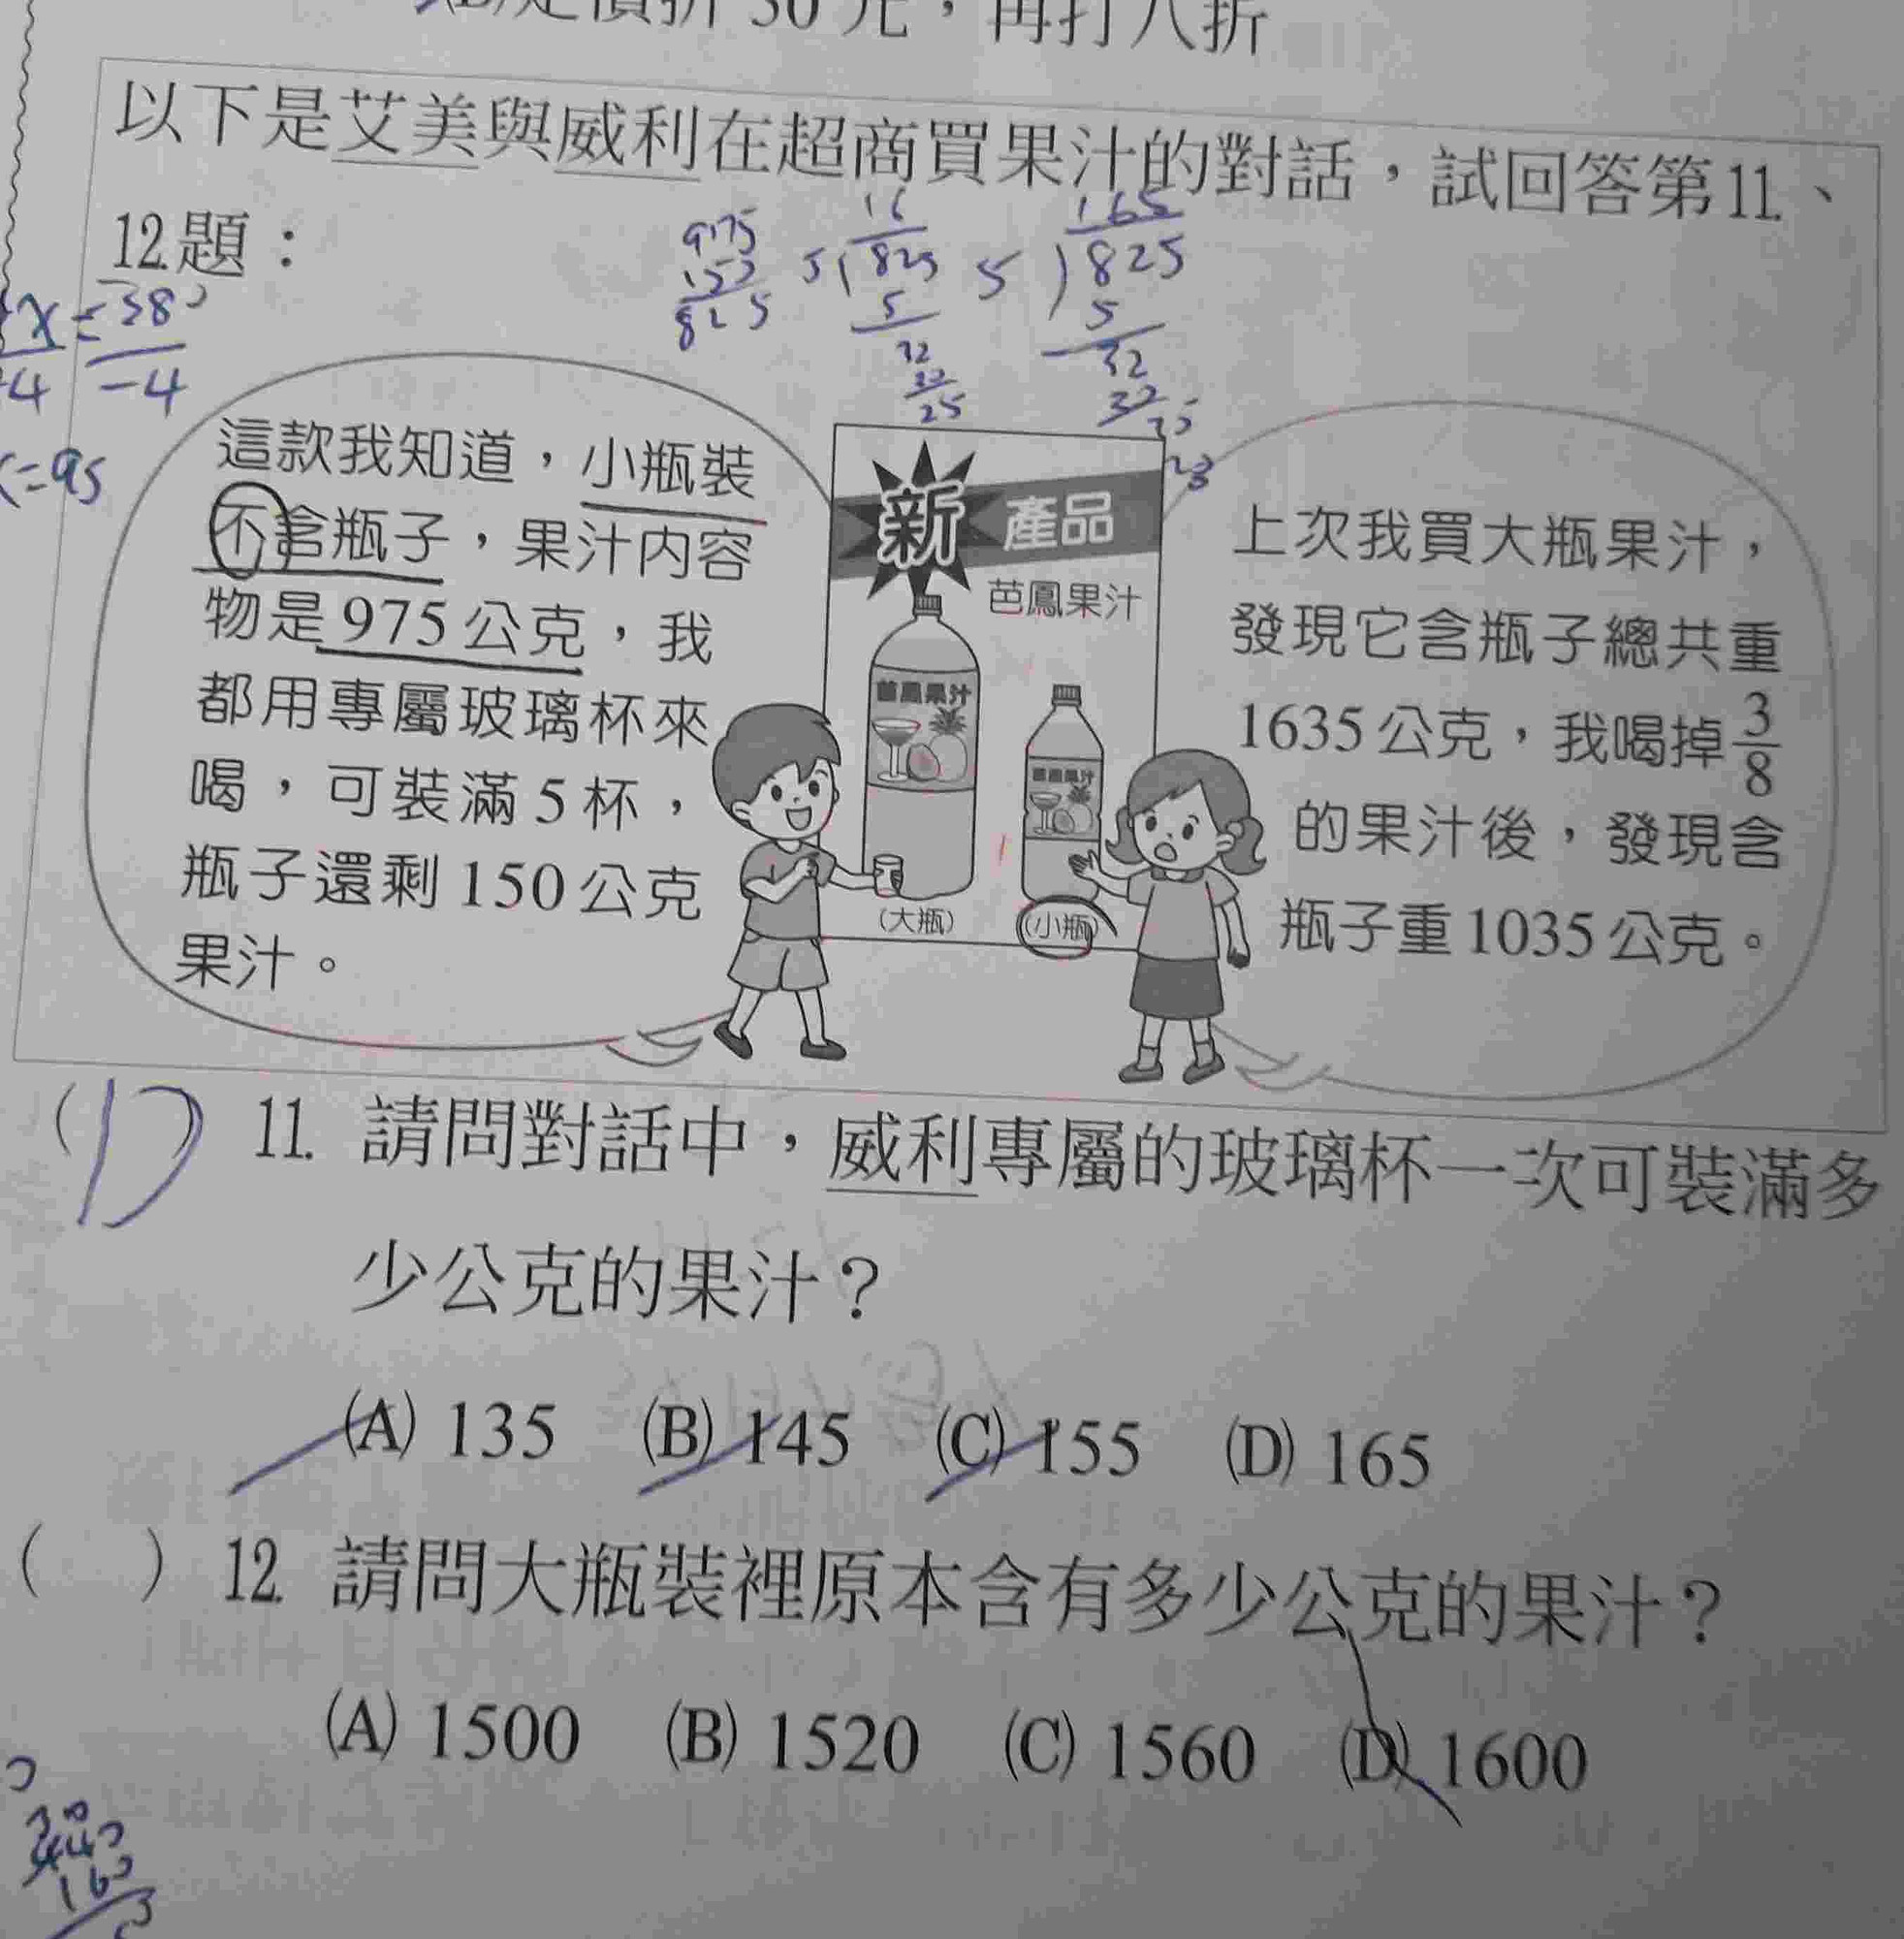 定價折 30 元，再打八折
以下是艾美與威利在超商買果汁的對話，試回答第11.、
12.題：
975
825
16
5 825
5
32
25
165
5 825
5
32
x = 380
-4 -4
=95
這款我知道，小瓶裝
不含瓶子，果汁內容
物是 975 公克，我
都用專屬玻璃杯來
喝，可裝滿 5 杯，
瓶子還剩 150 公克
果汁。
新 產品
芭鳳果汁
芭鳳果汁
芭鳳果汁
(大瓶)
(小瓶)
上次我買大瓶果汁，
發現它含瓶子總共重
1635 公克，我喝掉 3/8
的果汁後，發現含
瓶子重 1035 公克。
( D ) 11. 請問對話中，威利專屬的玻璃杯一次可裝滿多
少公克的果汁？
(A) 135 (B) 145 (C) 155 (D) 165
( ) 12. 請問大瓶裝裡原本含有多少公克的果汁？
(A) 1500 (B) 1520 (C) 1560 (D) 1600